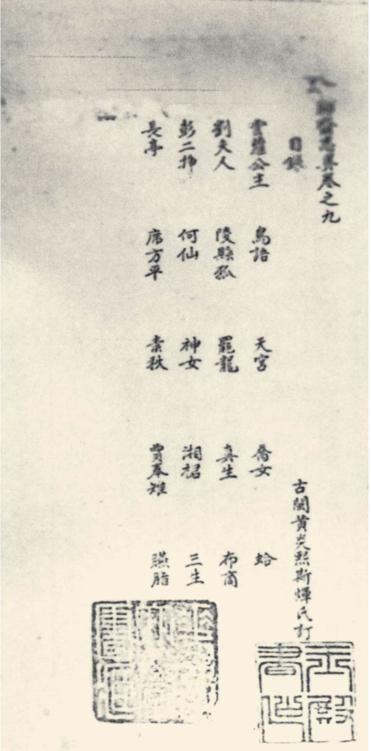 聊齋志異卷之九
古閩黃炎熙斯煇氏訂
目錄
雲蘿公主 鳥語 天宮 喬女 蛤
劉夫人 陵縣狐 罷龍 真生 布商
彭二掙 何仙 神女 湘裙 三生
長亭 席方平 素秋 賈奉雉 臙脂